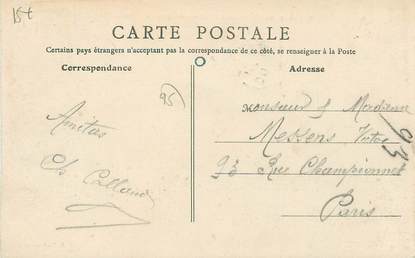 15+
CARTE POSTALE
Certains pays étrangers n'acceptant pas la correspondance de ce côté, se renseigner à la Poste
Correspondance
Adresse
95
Amitiés
Ch. Calland
Monsieur & Madame
Messens Victor
93 Rue Championnet
Paris